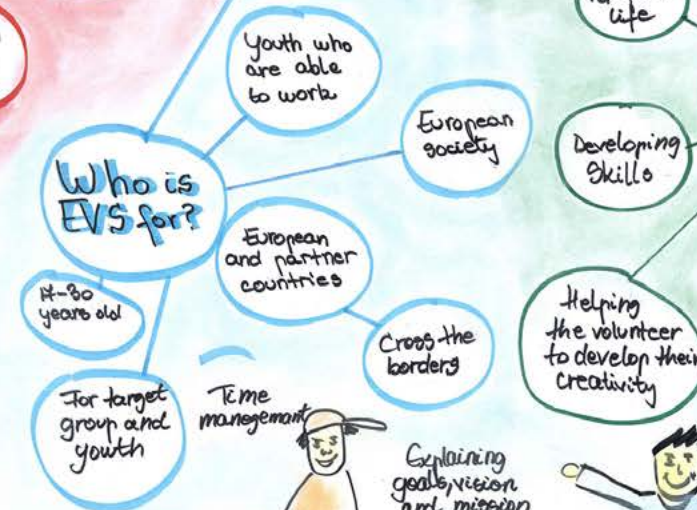 Youth who
are able
to work
European
society
life
Developing
Skills
Who is
EVS for?
European
and partner
countries
17-30
years old
Cross the
borders
Helping
the volunteer
to develop their
creativity
For target
group and
youwth
Time
manegemant
Explaining
goals, vision
and mission